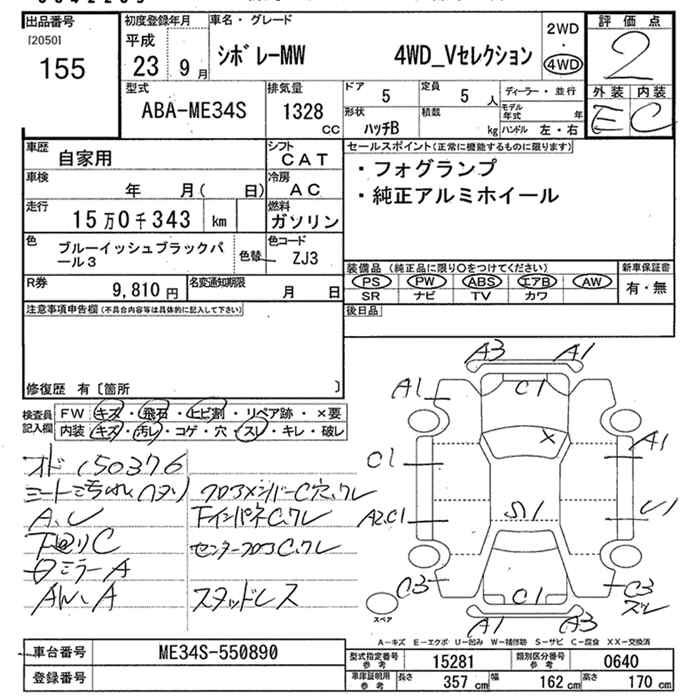 出品番号
[2050]
155
初度登録年月
平成
23 9月
車名・グレード
シボレーMW 4WD_Vセレクション
2WD
・
4WD
評価点
2
外装 内装
E C
型式
ABA-ME34S
排気量
1328
CC
ドア 5
定員 5 人
形状
ハッチB
積数
kg
ディーラー・並行
モデル年式 年
ハンドル 左・右
車歴
自家用
シフト
CAT
車検
年 月( 日)
冷房
AC
走行
15万0千343 km
燃料
ガソリン
色
ブルーイッシュブラックパール3
色替
色コード
ZJ3
R券
9,810円
名変通知期限
月 日
セールスポイント(正常に機能するものに限ります)
・フォグランプ
・純正アルミホイール
装備品 (純正品に限り○をつけてください)
PS PW ABS エアB AW
SR ナビ TV カワ
新車保証書
有・無
後日品
注意事項申告欄(不具合内容等は具体的に記入して下さい)
修復歴 有〔箇所 〕
検査員記入欄
FW キズ・飛石・ヒビ割・リペア跡・×要
内装 キズ・汚レ・コゲ・穴・スレ・キレ・破レ
オド 150376
シート汚れ、ヘタリ
A、U
下回りC
ミラーA
AW、A
フロアメンバーC穴、クレ
下インパネC、クレ
センターフロアC、クレ
スタッドレス
A3 A1
A1 C1
C1 X A1
A2,C1 S1 U1
C3 C1 C3
スレ
A1 A3
スペア
A-キズ E-エクボ U-凹み W-補修跡 S-サビ C-腐食 XX-交換済
車台番号
ME34S-550890
登録番号
型式指定番号
参考
15281
類別区分番号
参考
0640
車庫証明用
参考
長さ 357 cm
幅 162 cm
高さ 170 cm